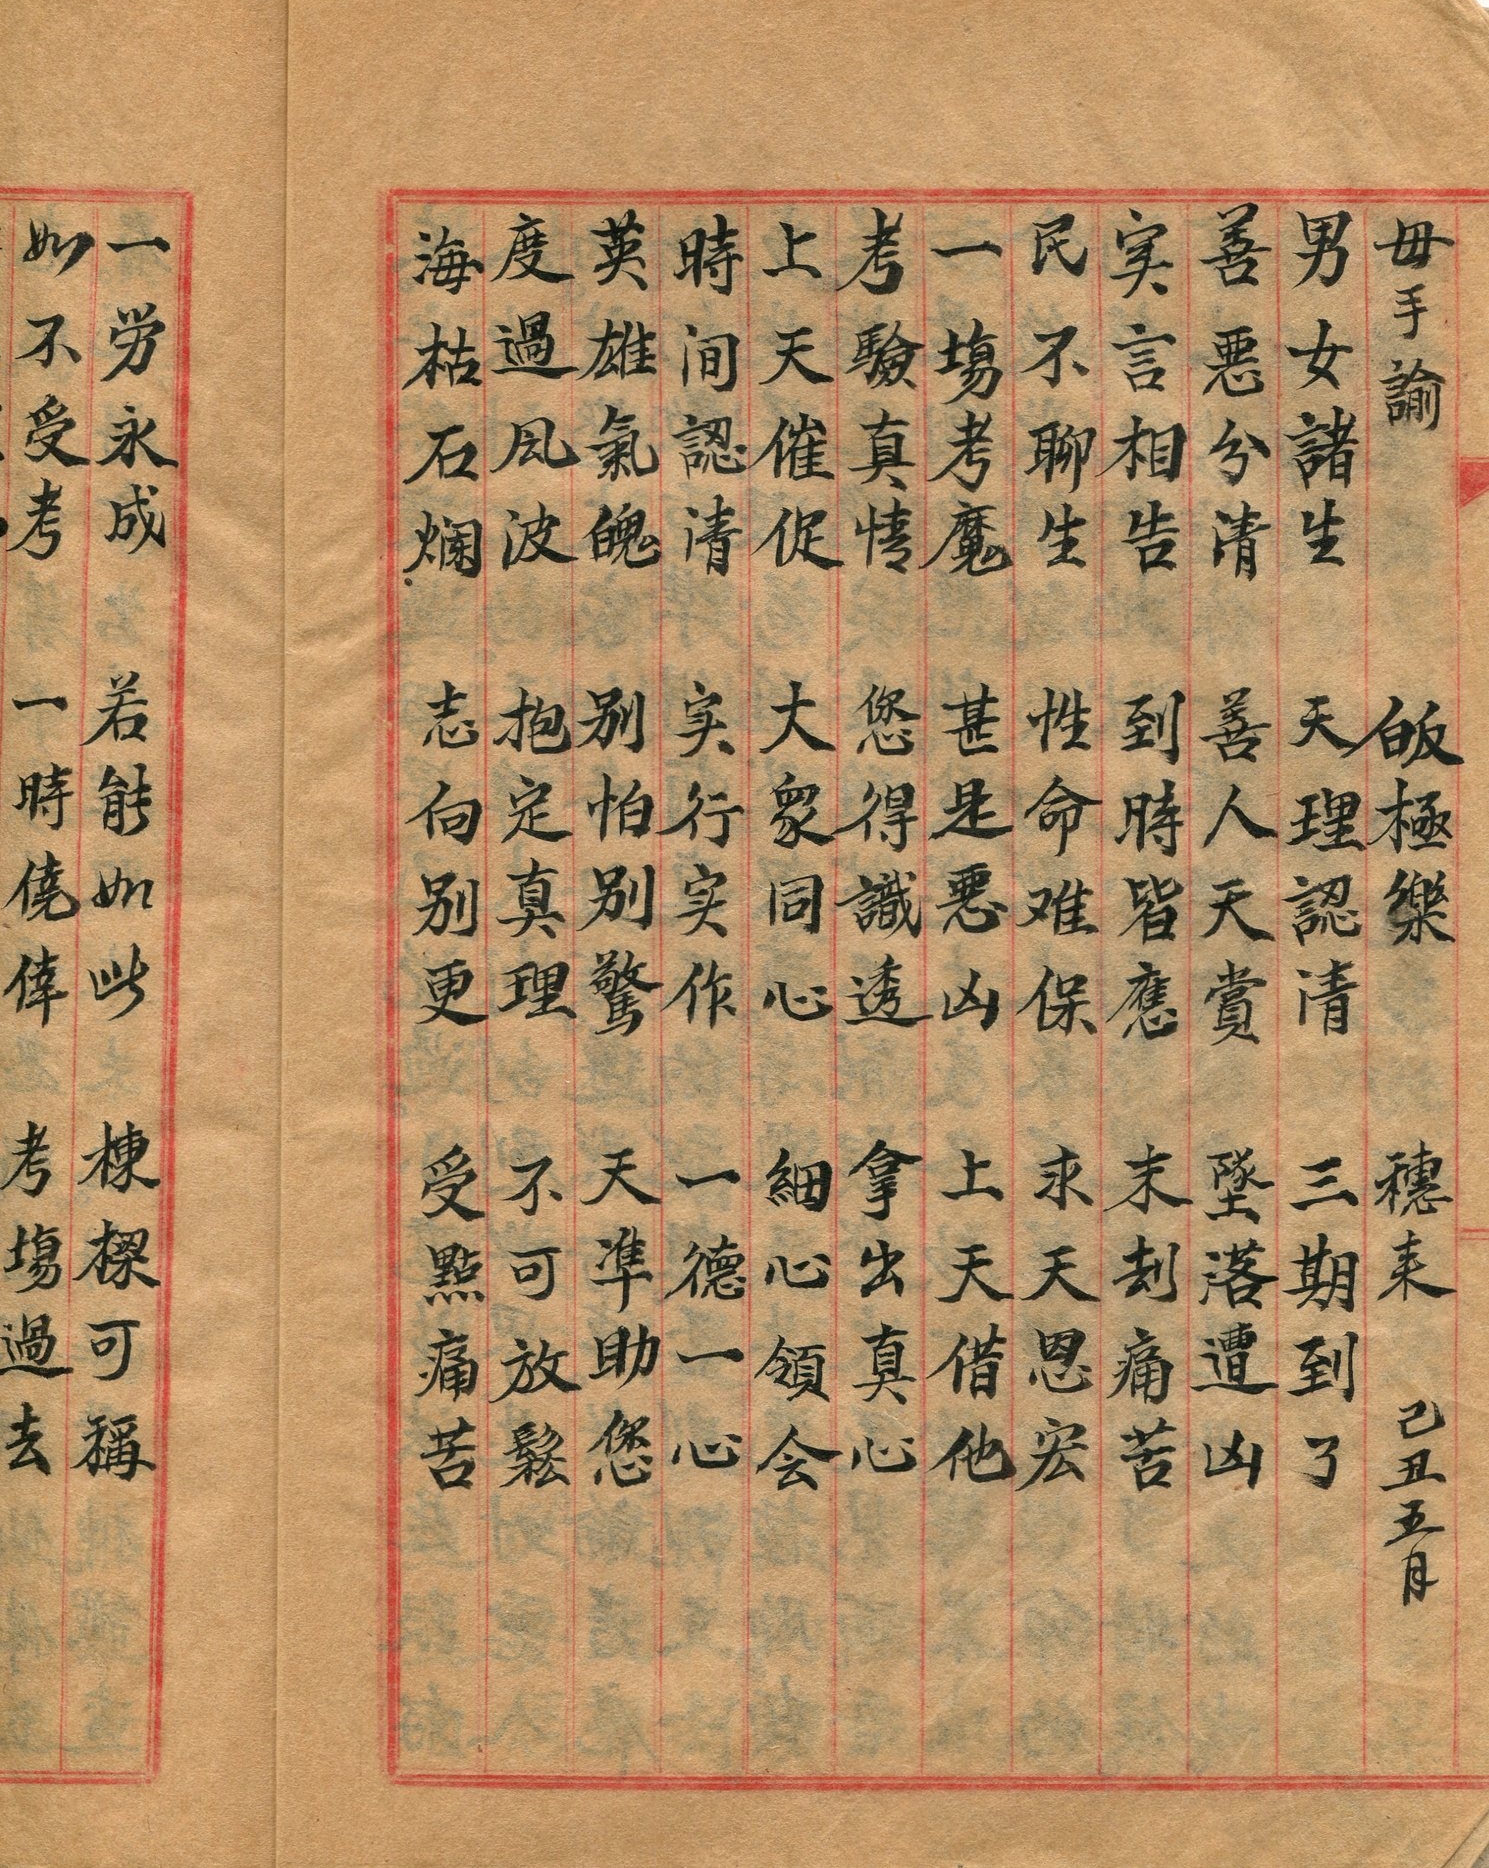 母手諭 皈極樂 穗来 己丑五月
男女諸生 天理認清 三期到了
善悪分清 善人天賞 墜落遭凶
実言相告 到時皆應 末刦痛苦
民不聊生 性命难保 求天恩宏
一塲考魔 甚是悪凶 上天借他
考驗真情 您得識透 拿出真心
上天催促 大衆同心 細心領会
時间認清 実行実作 一德一心
英雄氣魄 别怕别驚 天準助您
度過風波 抱定真理 不可放鬆
海枯石爛 志向别更 受點痛苦
一労永成 若能如此 棟樑可稱
如不受考 一時僥倖 考塲過去